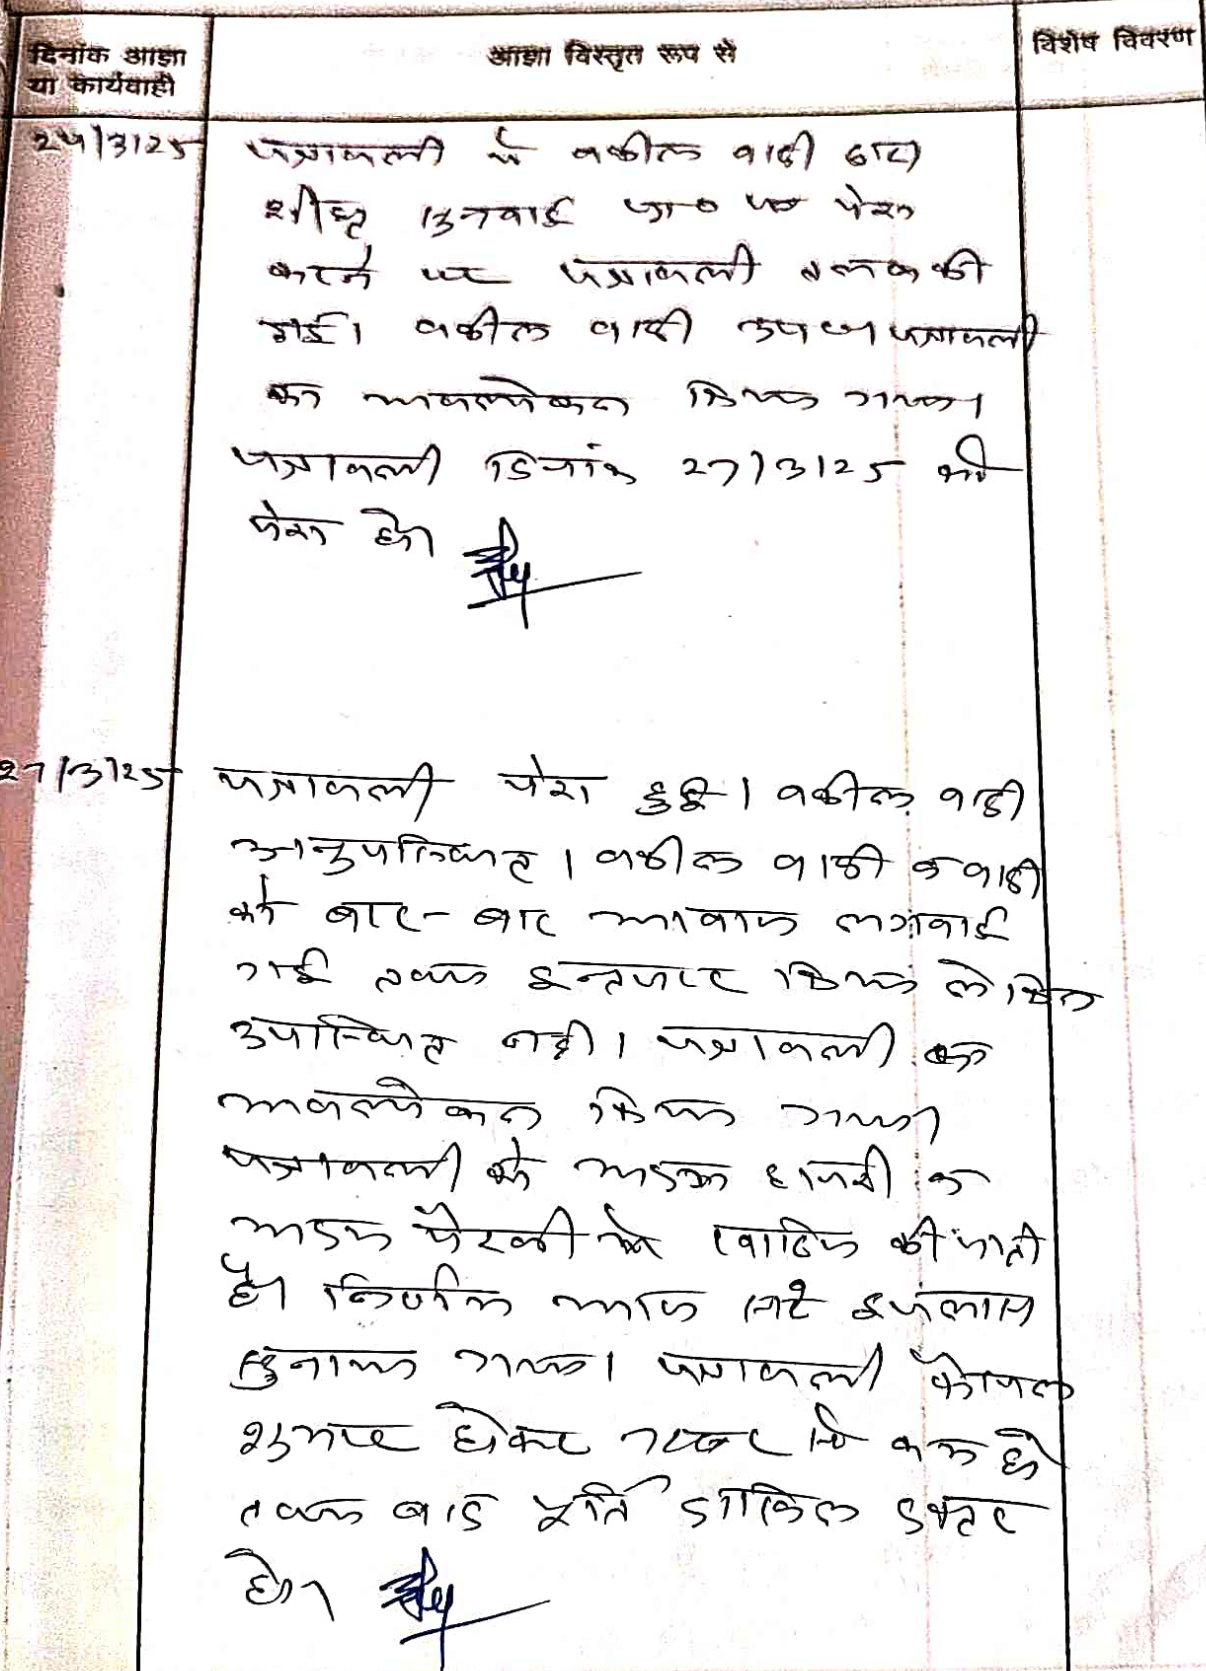 दिनांक आज्ञा
या कार्यवाही
आज्ञा विस्तृत रूप से
विशेष विवरण
24/3/25 पत्रावली में वकील वादी द्वारा
शीघ्र सुनवाई प्रा० पत्र पेश
करने पर पत्रावली तलब की
गई। वकील वादी उप० पत्रावली
का अवलोकन किया गया।
पत्रावली दिनांक 27/3/25 को
पेश हो।
27/3/25 पत्रावली पेश हुई। वकील वादी
अनुपस्थित। वकील वादी व वादी
को बार-बार आवाज लगवाई
गई तथा इन्तजार किया लेकिन
उपस्थित नहीं। पत्रावली का
अवलोकन किया गया।
पत्रावली को अदम हाजरी व
अदम पैरवी में खारिज की जाती
है। निर्णय आज सरे इजलास
सुनाया गया। पत्रावली फैसल
शुमार होकर नम्बर से कम हो
तथा बाद पूर्ति दाखिल दफ्तर
हो।